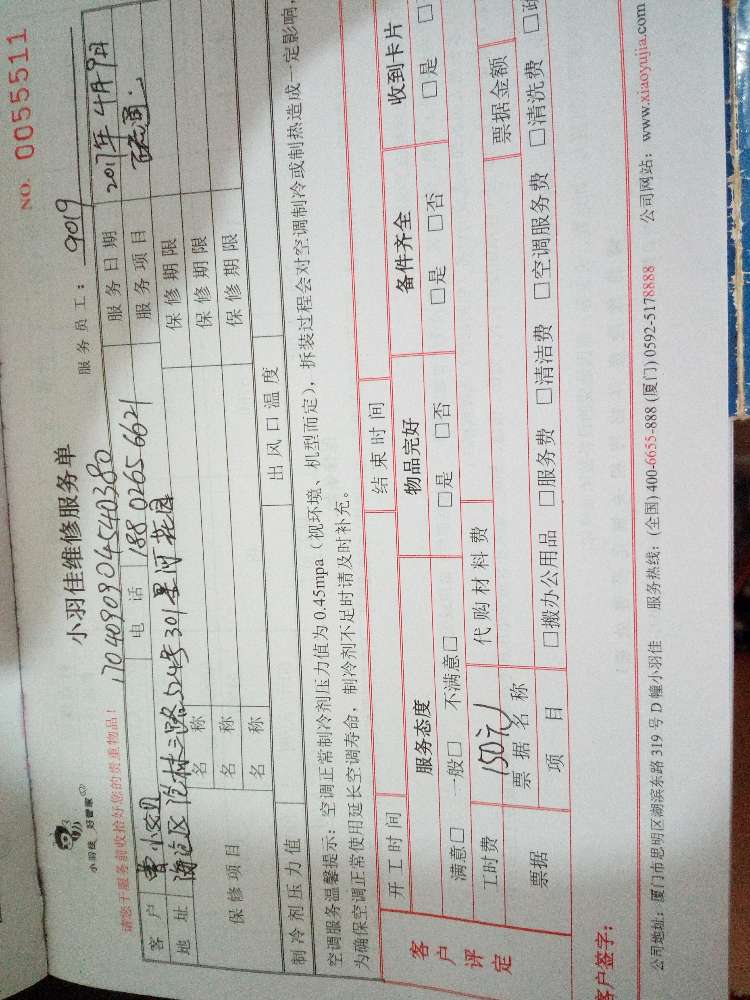 小羽佳 好管家
小羽佳维修服务单
NO. 0055511
服务员工： 9019
请您于服务前收拾好您的贵重物品！
1704090904540380
客户 曹小姐 电话 18802656621 服务日期 2017年4月9日
地址 海沧区沧林三路524号301星河花园 服务项目
保修项目 名称 保修期限
名称 保修期限
名称 保修期限
制冷剂压力值 出风口温度
空调服务温馨提示：空调正常制冷剂压力值为0.45mpa（视环境、机型而定），拆装过程会对空调制冷或制热造成一定影响，
为确保空调正常使用延长空调寿命，制冷剂不足时请及时补充。
客户评定
开工时间 结束时间
服务态度 物品完好 备件齐全 收到卡片
满意□ 一般□ 不满意□ □是 □否 □是 □否 □是 □
工时费 150元 代购材料费
票据 票据名称 票据金额
项目 □搬办公用品 □服务费 □清洁费 □空调服务费 □清洗费
客户签字：
公司地址：厦门市思明区湖滨东路319号D幢小羽佳 服务热线：(全国) 400-6655-888 (厦门) 0592-5178888 公司网站：www.xiaoyujia.com